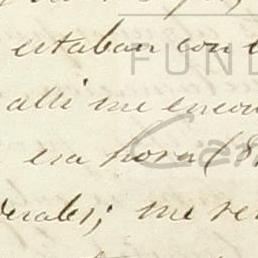 estaban con
FUND
alli me encon
era hora (8
Ca
erales; me re